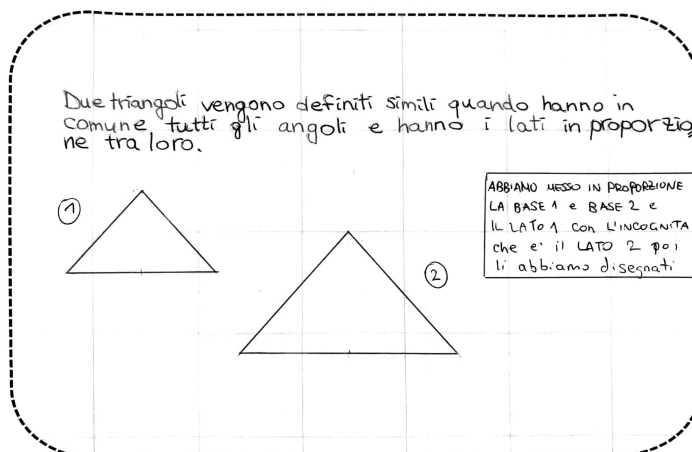 Due triangoli vengono definiti simili quando hanno in
comune tutti gli angoli e hanno i lati in proporzio
ne tra loro.
1
ABBIAMO MESSO IN PROPORZIONE
LA BASE 1 e BASE 2 e
IL LATO 1 con L'INCOGNITA
che e' il LATO 2 poi
li abbiamo disegnati
2